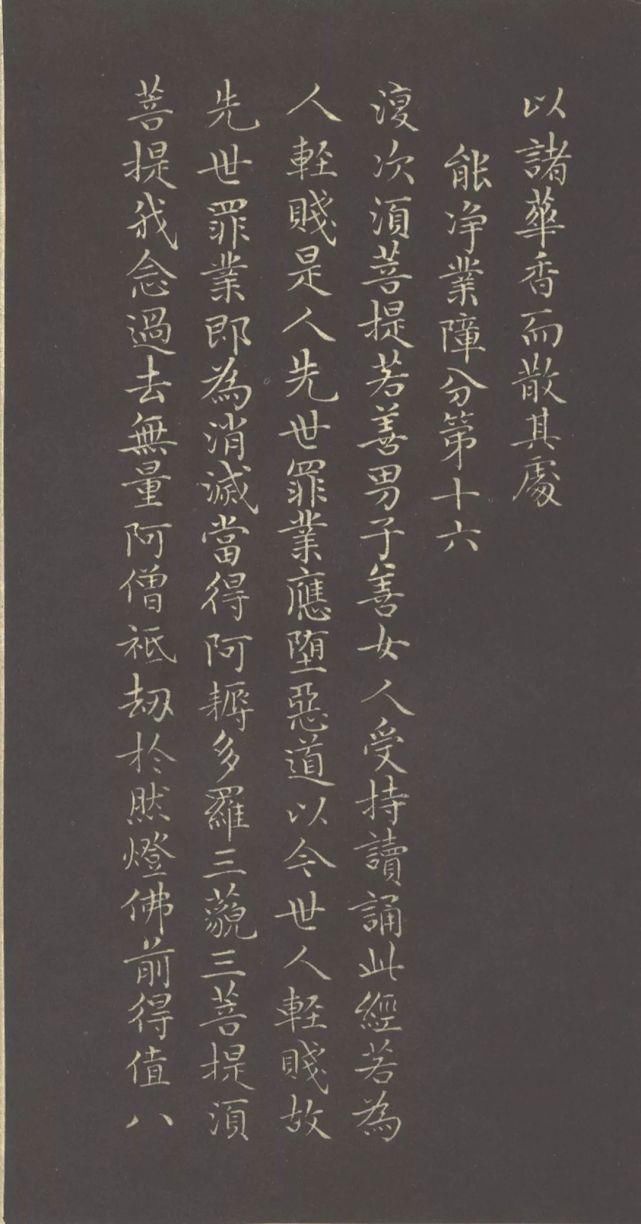 以諸華香而散其處
能净業障分第十六
復次須菩提若善男子善女人受持讀誦此經若為
人輕賤是人先世罪業應墮惡道以今世人輕賤故
先世罪業即為消滅當得阿耨多羅三藐三菩提須
菩提我念過去無量阿僧祇劫於然燈佛前得值八